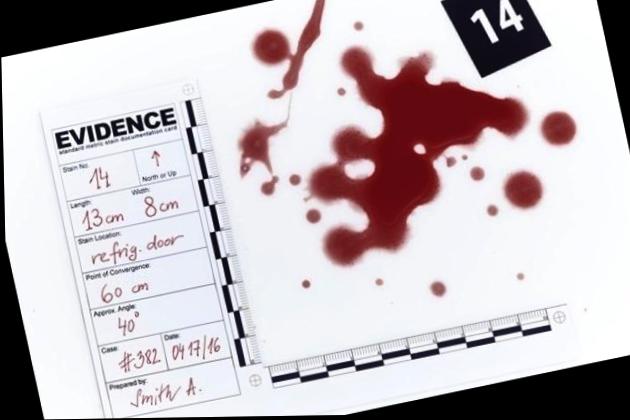 14
EVIDENCE
standard metric stain documentation card
Stain No:
14
↑
North or Up
Length:
Width:
13 cm 8 cm
Stain Location:
refrig. door
Point of Convergence:
60 cm
Approx. Angle:
40°
Case:
Date:
#382 04 17/16
Prepared by:
Smith A.